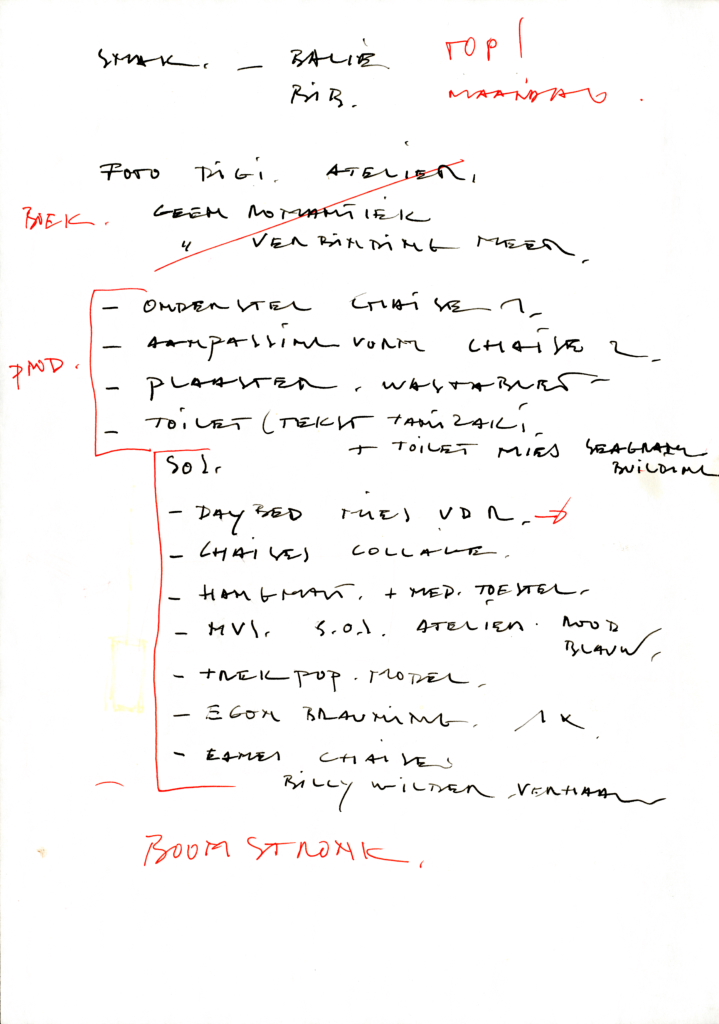 SMAK. — BALIE TOP!
BIB. MAANDAG.
FOTO DIGI. ATELIER.
BOEK. GEEN ROMANTIEK
" VERBINDING MEER.
– ONDERSTEL CHAISE 1.
– AANPASSING VORM CHAISE 2.
PROD.
– PLAASTER. WASTABLET
– TOILET (TEKST TANIZAKI.
+ TOILET MIES SEAGRAM
BUILDING
SOS.
– DAYBED MIES VDR. →
– CHAISES COLLAGE.
– HANGMAT. + MED. TOESTEL.
– MVS. S.O.S. ATELIER. ROOD
BLAUW.
– TREKPOP. MODEL.
– EGON BRAUNING. 1K.
– EAMES CHAISES
BILLY WILDER VERHAAL
BOOMSTRONK.